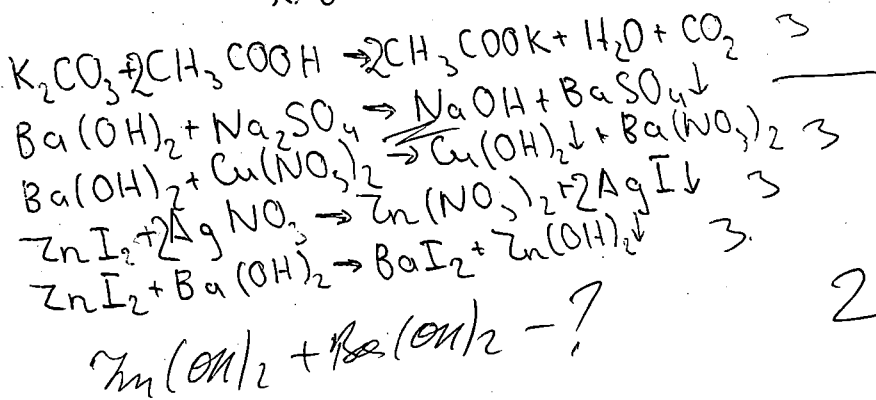 K₂CO₃+2CH₃COOH→2CH₃COOK+H₂O+CO₂ 3
Ba(OH)₂+Na₂SO₄→NaOH+BaSO₄↓
Ba(OH)₂+Cu(NO₃)₂→Cu(OH)₂↓+Ba(NO₃)₂ 3
ZnI₂+2AgNO₃→Zn(NO₃)₂+2AgI↓ 3
ZnI₂+Ba(OH)₂→BaI₂+Zn(OH)₂↓ 3.
Zn(OH)₂+Ba(OH)₂-? 2